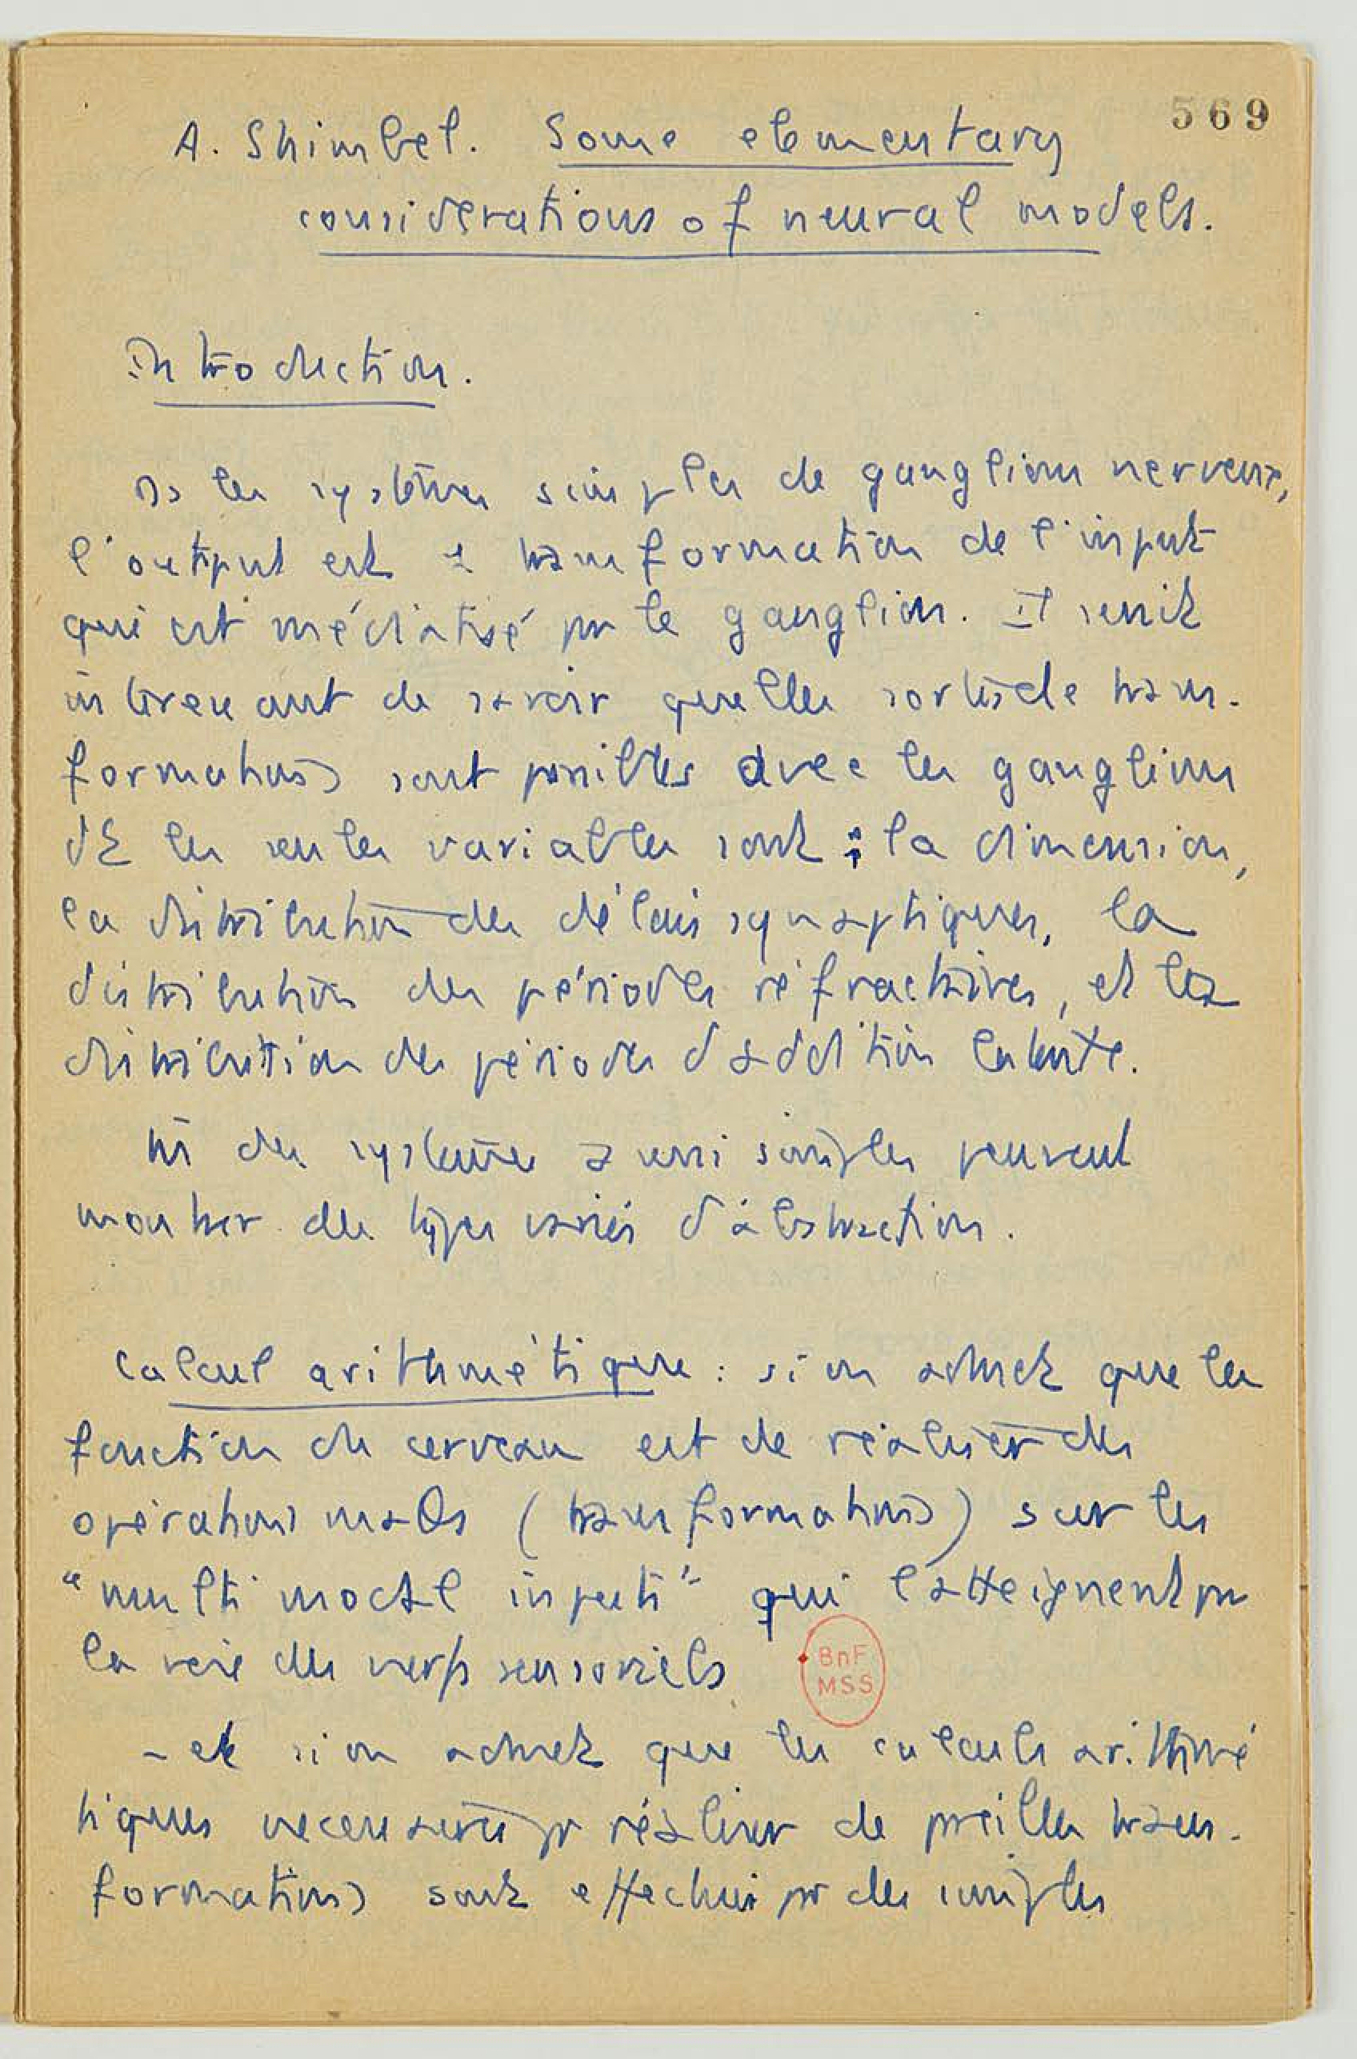 569
A. Shimbel. Some elementary
considerations of neural models.
Introduction.
Ds les systèmes simples de ganglions nerveux,
l'output est 1 transformation de l'input
qui est médiatisé par le ganglion. Il serait
intéressant de savoir quelles sortes de trans-
formations sont possibles avec les ganglions
dt les seules variables sont : la dimension,
la distribution des délais synaptiques, la
distribution des périodes réfractaires, et la
distribution des périodes d'addition latente.
des systèmes aussi simples peuvent
montrer des types variés d'abstraction.
Calcul arithmétique : si on admet que la
fonction du cerveau est de réaliser des
opérations maths (transformations) sur les
"multi modal inputs" qui l'atteignent par
la voie des nerfs sensoriels
- et si on admet que les calculs arithmé
tiques nécessaires pr réaliser de pareilles trans-
formations sont effectués par des simples
BnF
MSS